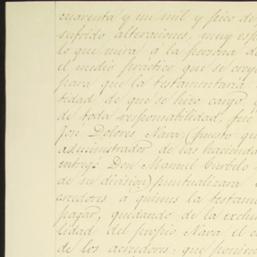 cuarenta y un mil y pico de
sufrido alteraciones, muy esp
lo que mira a la persona de
el medio practico que se crey
para que la testamentaria
tidad de que se hizo cargo y
de toda responsabilidad, fué
Don Dolores Nava (puesto que
administrador de las haciendas
entregó Don Manuel Curbelo y
de su division) puntualizara
acredores a quienes la testam
pagar, quedando de la exclus
lidad del propio Nava el c
de los acredores, que ponen